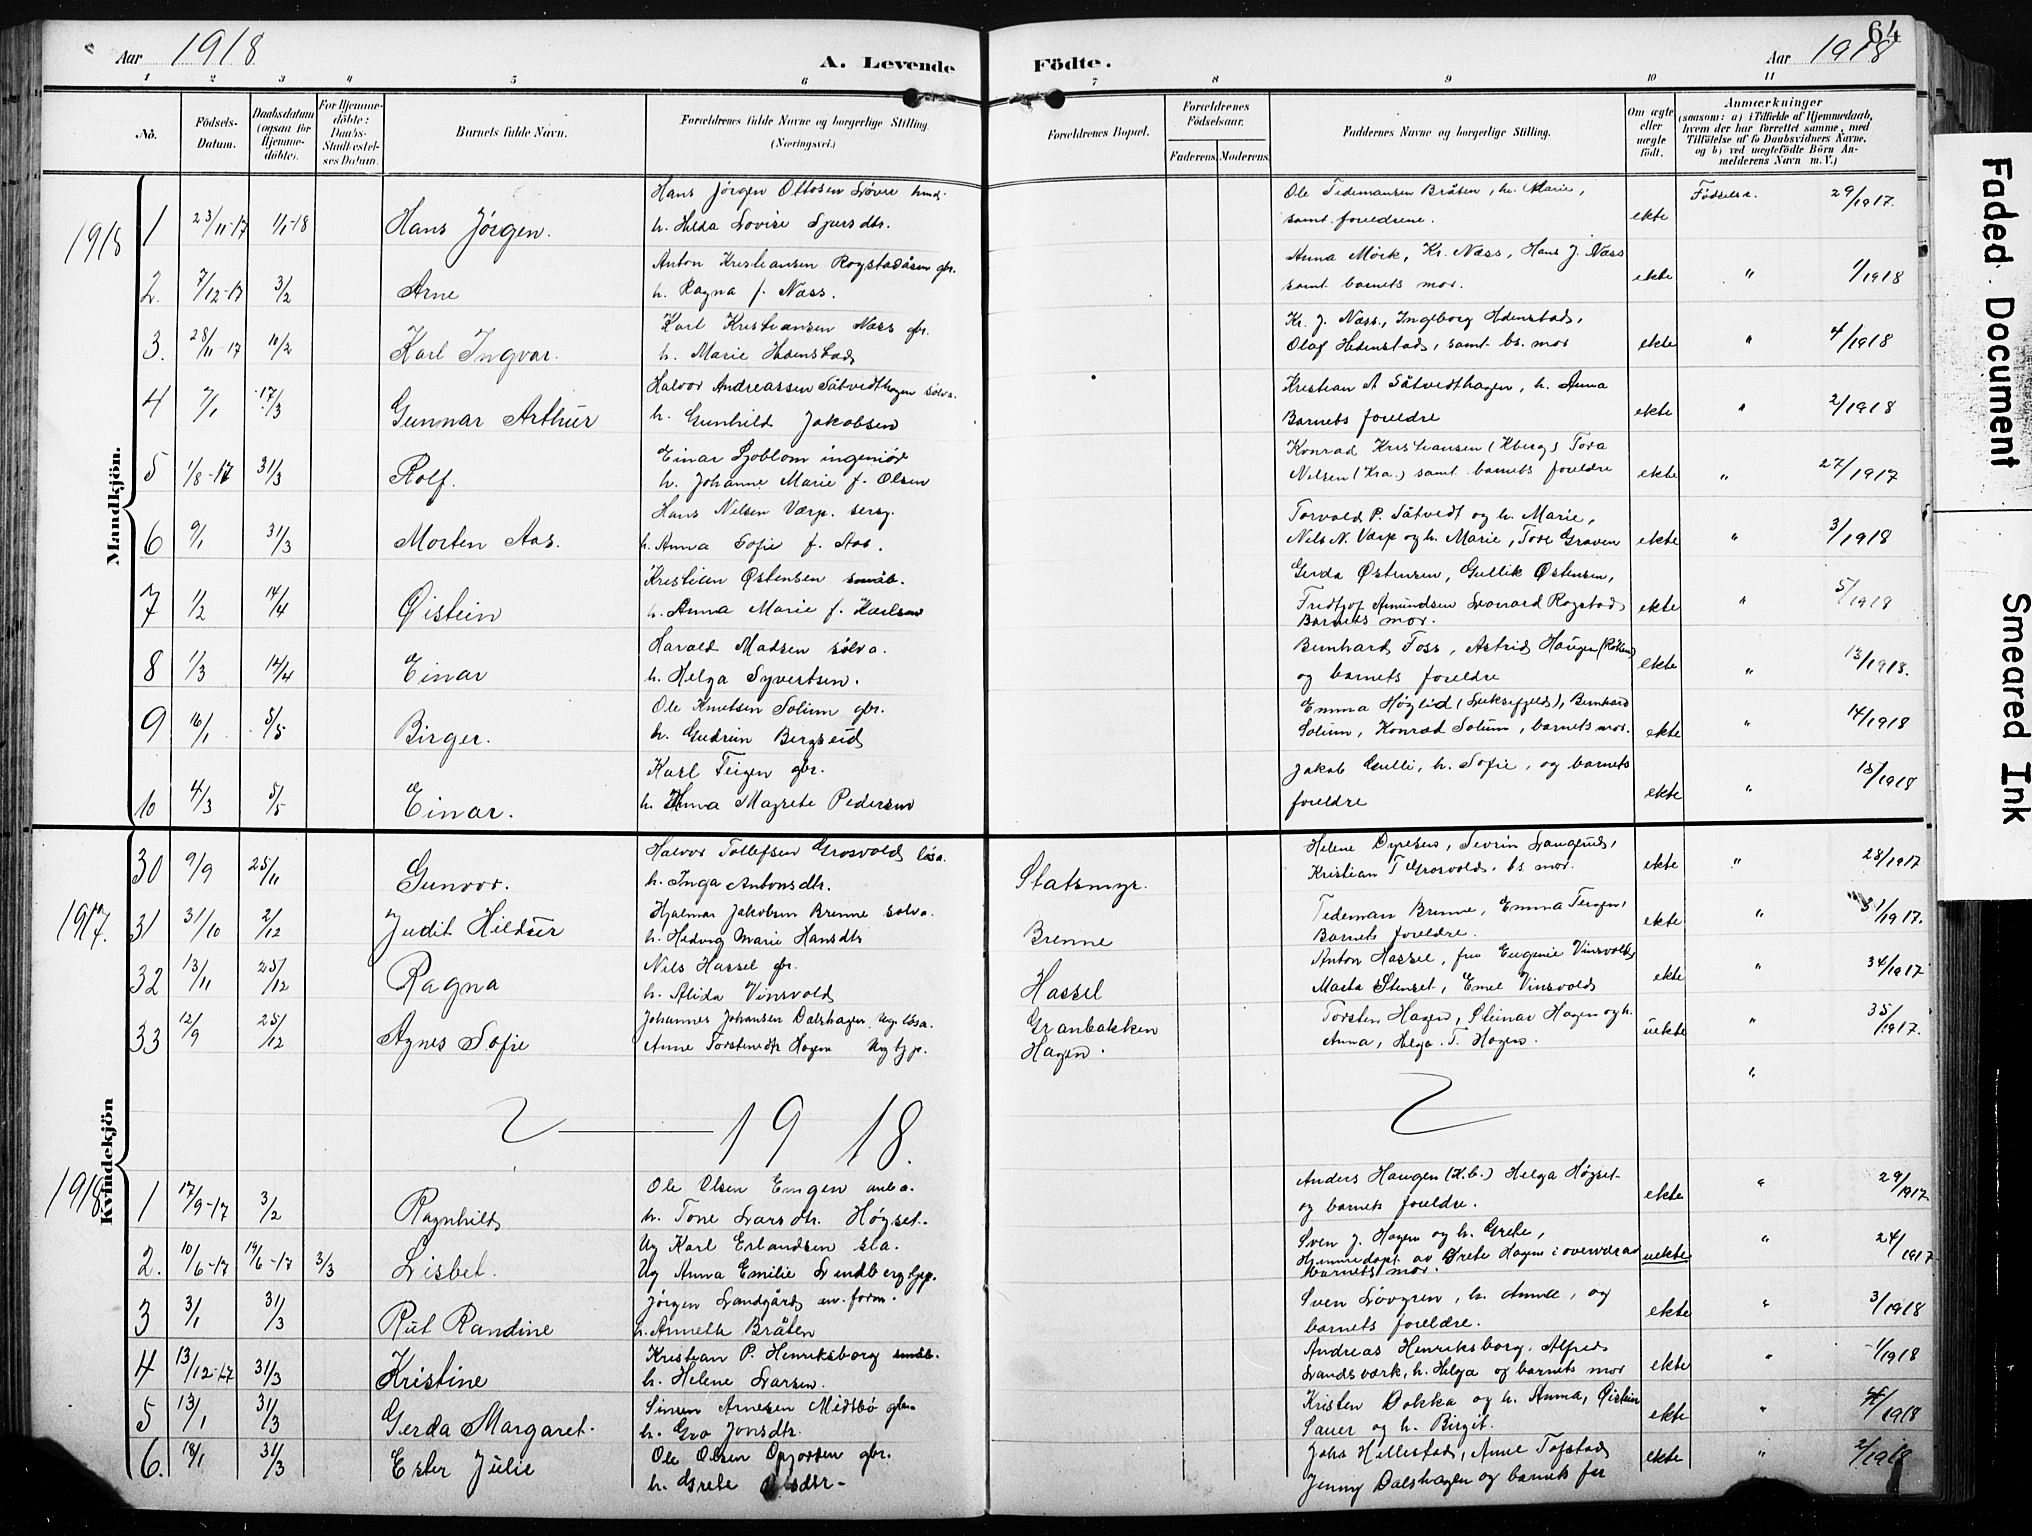 Aar 1918
A. Levende Födte.
Aar 1918
64
1 2 3 4 5 6 7 8 9 10 11
No.
Födsels-Datum.
Daabsdatum (ogsaa for Hjemmedöbte).
For Hjemmedöbte: Daabs-Stadfæstelses Datum.
Barnets fulde Navn.
Forældrenes fulde Navne og borgerlige Stilling.
(Næringsvei.)
Forældrenes Bopæl.
Forældrenes Födselsaar.
Faderens. Moderens.
Faddernes Navne og borgerlige Stilling.
Om ægte eller uægte födt.
Anmærkninger
(saasom: a) i Tilfælde af Hjemmedaab, hvem der har forrettet samme, med Tilföielse af to Daabsvidners Navne, og b) ved uægtefödte Börn Anmelderens Navn m. V.)
Mandkjön.
1918
1 23/11-17 1/1-18 Hans Jörgen. Hans Jörgen Ottosen
h. Hilda Lovise Sjursdtr.
Ole Tidemansen Bråten, h. Marie,
samt foreldrene. ekte Födselsa. 29/1917.
2. 7/12-17 3/2 Arne Anton Kristiansen Rogstadåsen gbr.
h. Ragna f. Næss.
Anna Mörk, Kr. Næss, Hans J. Næss
samt barnets mor. ekte " 1/1918
3. 28/11-17 10/2 Karl Ingvar. Karl Kristiansen Næss gbr.
h. Marie Hedenstad
Kr. J. Næss, Ingeborg Hedenstad,
Olaf Hedenstad, samt bs. mor ekte " 4/1918
4 7/1 17/3 Gunnar Arthur Halvor Andreassen Såtvedthagen sölva.
h. Gunhild Jakobsen
Kristian A Såtvedthagen, h. Anna
Barnets foreldre ekte " 2/1918
5 1/8-17 31/3 Rolf. Einar Sjoblom ingeniör
h. Johanne Marie f. Olsen
Konrad Kristiansen (Kberg) Tora
Nilsen (Kra.) samt barnets foreldre ekte " 27/1917
6 9/1 31/3 Morten Aas. Hans Nilsen Værp. sersj.
h. Anna Sofie f. Aas.
Torvald P. Såtvedt og h. Marie,
Nils N. Værp og h. Marie, Tore Graven ekte " 3/1918
7 1/2 14/4 Öistein Kristian Östensen småb.
h. Anna Marie f. Karlsen
Gerda Östensen, Gullik Östensen,
Fridtjof Amundsen Leonard Rogstad
Barnets mor. ekte " 5/1918
8 1/3 14/4 Einar Harald Madsen sölva.
h. Helga Syvertsen.
Bernhard Foss, Astrid Haugen (Röken)
og barnets foreldre ekte " 13/1918.
9 16/1 5/5 Birger. Ole Knutsen Solum gbr.
h. Gudrun Bergseid
Emma Höglid, Bernhard
Solum, Konrad Solum, barnets mor. ekte " 14/1918
10 4/3 5/5 Einar. Karl Teigen gbr.
h. Anna Magrete Pedersen
Jakob Gulli, h. Sofie, og barnets
foreldre ekte " 15/1918
Kvindekjön
1917.
30 9/9 25/11 Gunvor. Halvor Tollefsen Grosvold lösa.
h. Inga Antonsdtr.
Slatsmyr.
Helene Dyresen, Sevrin Langerud,
Kristian T Grosvold, bs mor. ekte " 28/1917
31 31/10 2/12 Judit Hildur Hjalmar Jakobsen Brenne sölva.
h. Hedvig Marie Hansdtr
Brenne
Tideman Brenne, Emma Teigen,
Barnets foreldre. ekte " 31/1917.
32 13/11 25/12 Ragna Nils Hassel gbr.
h. Alida Vinsvold
Hassel
Anton Hassel, fru Eugenie Vinsvold,
Marta Stenset, Emil Vinsvold ekte " 34/1917
33 12/9 25/12 Agnes Sofie Johannes Johansen Dalshagen Ug. lösa.
Anne Torstensdtr Hagen Ug tjp.
Granbakken
Hagen.
Torsten Hagen, Steinar Hagen og h.
Anna, Helga T. Hagen. uekte " 35/1917.
"
1918.
1918.
1 17/9-17 3/2 Ragnhild Ole Olsen Engen anba.
h. Tone Larsdtr. Högset.
Anders Haugen (K.b.) Helga Högset
og barnets foreldre. ekte " 29/1917
2. 10/6-17 19/6-17 3/3 Lisbet. Ug Karl Erlandsen sta.
Ug Anna Emilie Lindberg tjp.
Sven J. Hagen og h. Grete,
Hjemmedöpt av Grete Hagen i overvær av
barnets mor. uekte " 24/1917
3 3/1 31/3 Rut Randine Jörgen Landgård an. form.
h. Annette Bråten
Sven Lövgren, h. Anna, og
barnets foreldre. ekte " 3/1918
4 13/12-17 31/3 Kristine Kristian P. Henriksborg småb.
h. Helene Larsen.
Andreas Henriksborg. Alfred
Landsværk, h. Helga og barnets mor ekte " 1/1918
5 13/1 31/3 Gerda Margaret. Simen Arnesen Midtbö gbr.
h. Gro Jonsdtr.
Kristen Dokka og h. Anna, Öistein
Sauer og h. Birgit. ekte " 4/1918
6. 18/1 31/3 Ester Julie Ole Olsen Opjorden gbr.
h. Grete Olsdtr-
Johs Hillestad, Anne Tofstad
Jenny Dalshagen og barnets far ekte " 2/1918
Faded Document
Smeared Ink